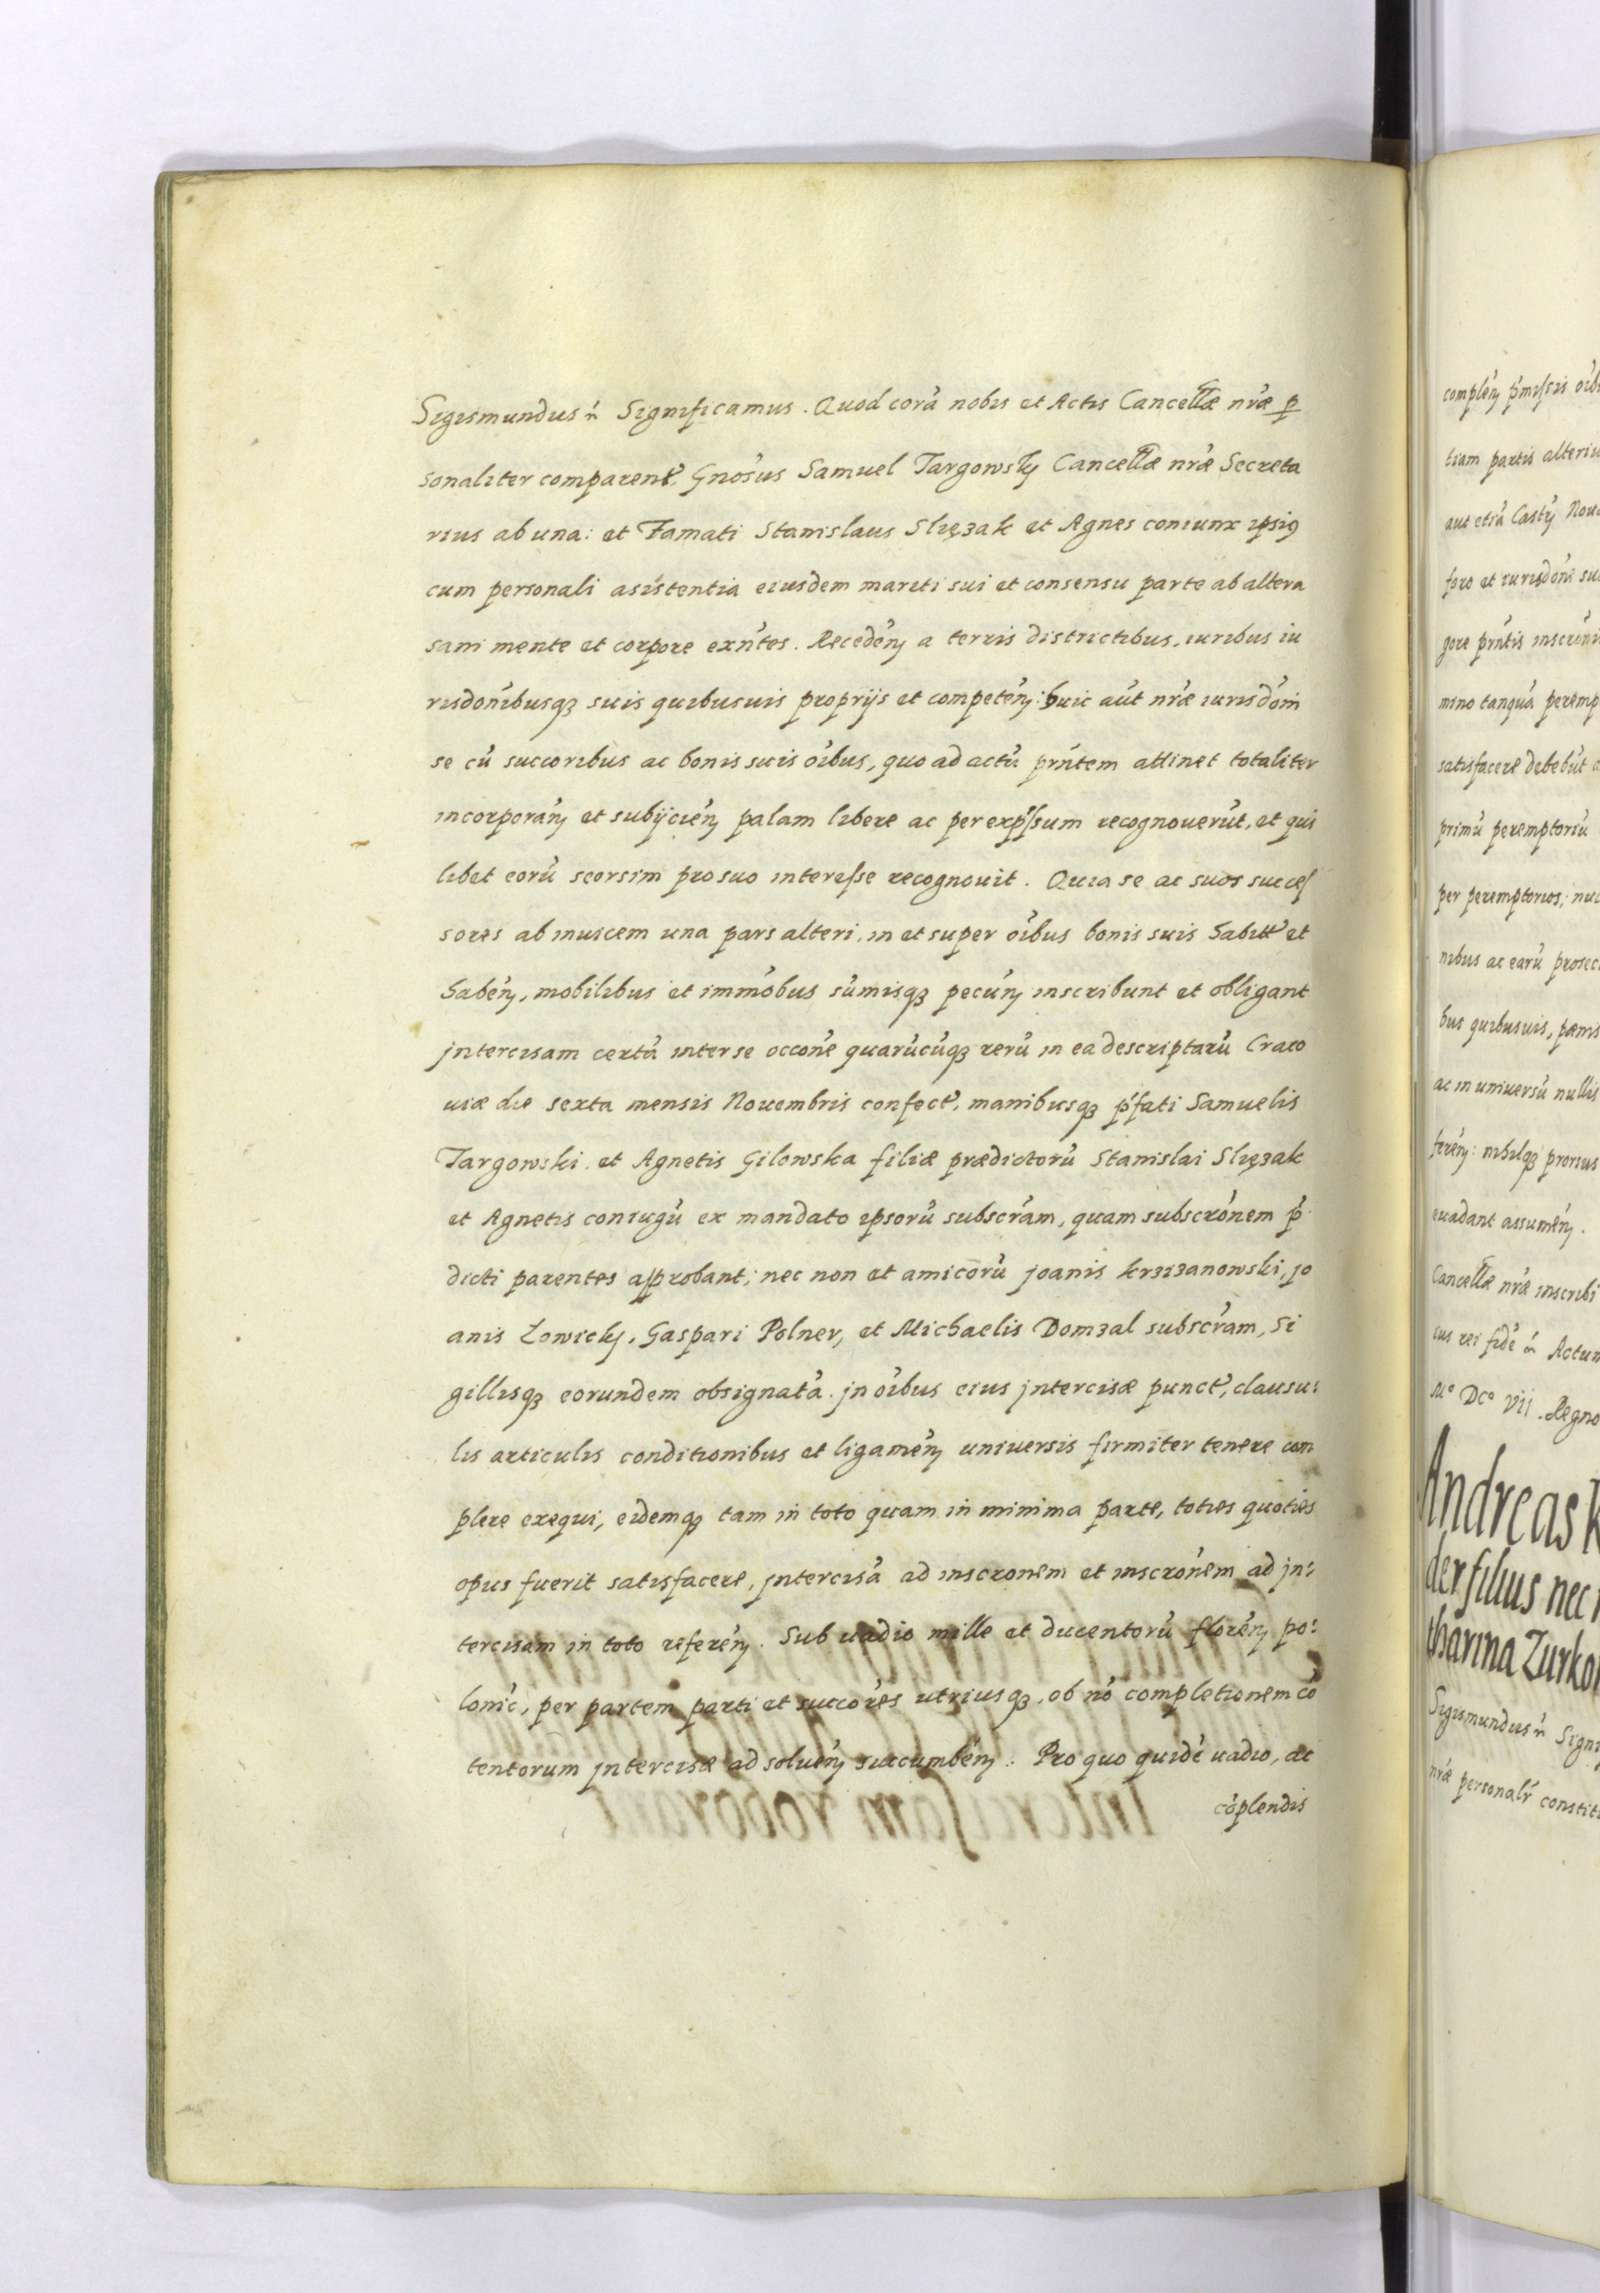 Sigismundus ẽ Significamus. Quod corã nobis et Actis Cancellæ nræ p
sonaliter comparent. Gnosus Samuel Targowsky Cancellæ nræ Secreta
rius ab una: et Famati Stanislaus Slięzak et Agnes coniunx ipsiq
cum personali asistentia eiusdem mariti sui et consensu parte ab altera
sani mente et corpore exntes. Recedeñ a terris districtibus, iuribus iu
risdonibusqз suis quibusuis proprijs et competeñ: huic aut nræ iurisdoni
se cũ succoribus ac bonis suis oibus, quo ad actũ prntem attinet totaliter
incorporañ et subijcieñ palam libere ac per expssum recognouerũt, et qui
libet eorũ seorsim pro suo interesse recognouit. Quia se ac suos succes
sores ab inuicem una pars alteri, in et super oibus bonis suis habitt et
habeñ, mobilibus et immobus sũmisqз pecuñ inscribunt et obligant
jntercisam certã inter se occone quarũcũqз rerũ in ea descriptarũ Craco
uiæ die sexta mensis Nouembris confect, manibusqз pfati Samuelis
Targowski et Agnetis Gilowska filiæ prædictorũ Stanislai Slięzak
et Agnetis coniugũ ex mandato ipsorũ subscram, quam subscronem p
dicti parentes approbant; nec non et amicorũ joanis krzizanowski, jo
anis Łowicky, Gaspari Polner, et Michaelis Domzal subscram, Si
gillisqз eorundem obsignatã. jn oibus eius jntercisæ punct, clausu:
lis articulis conditionibus et ligameñ uniuersis firmiter tenere com
plere exequi, eidemqз tam in toto quam in minima parte, toties quoties
opus fuerit satisfacere, jntercisã ad inscronem et inscronem ad jn:
tercisam in toto refereñ. Sub uadio mille et ducentorũ floreñ po:
lonic, per partem parti et succores utriusqз, ob nõ completionem cõ
tentorum jntercisæ ad solueñ succumbeñ. Pro quo quidẽ uadio, ac
cõplendis
compleñ pmissis oib
tiam partis alteriu
aut etiã Casty Nou
foro et iurisdoni su
gore prntis inscroni
mino tanquã peremp
satisfacere debebũt
primũ peremptoriũ
per peremptorios; nu
nibus ac earũ prosec
bus quibusuis, pœnis
ac in uniuersũ nullis
fereñ: nihilqз prorsus
euadant assumeñ.
Cancellæ nræ inscribi
ius rei fidẽ ẽ Actum
Mº DCº VII. Regno
Andreas K
der filius nec
tharina Zurko
Sigismundus ẽ Signi
nræ personalr constit